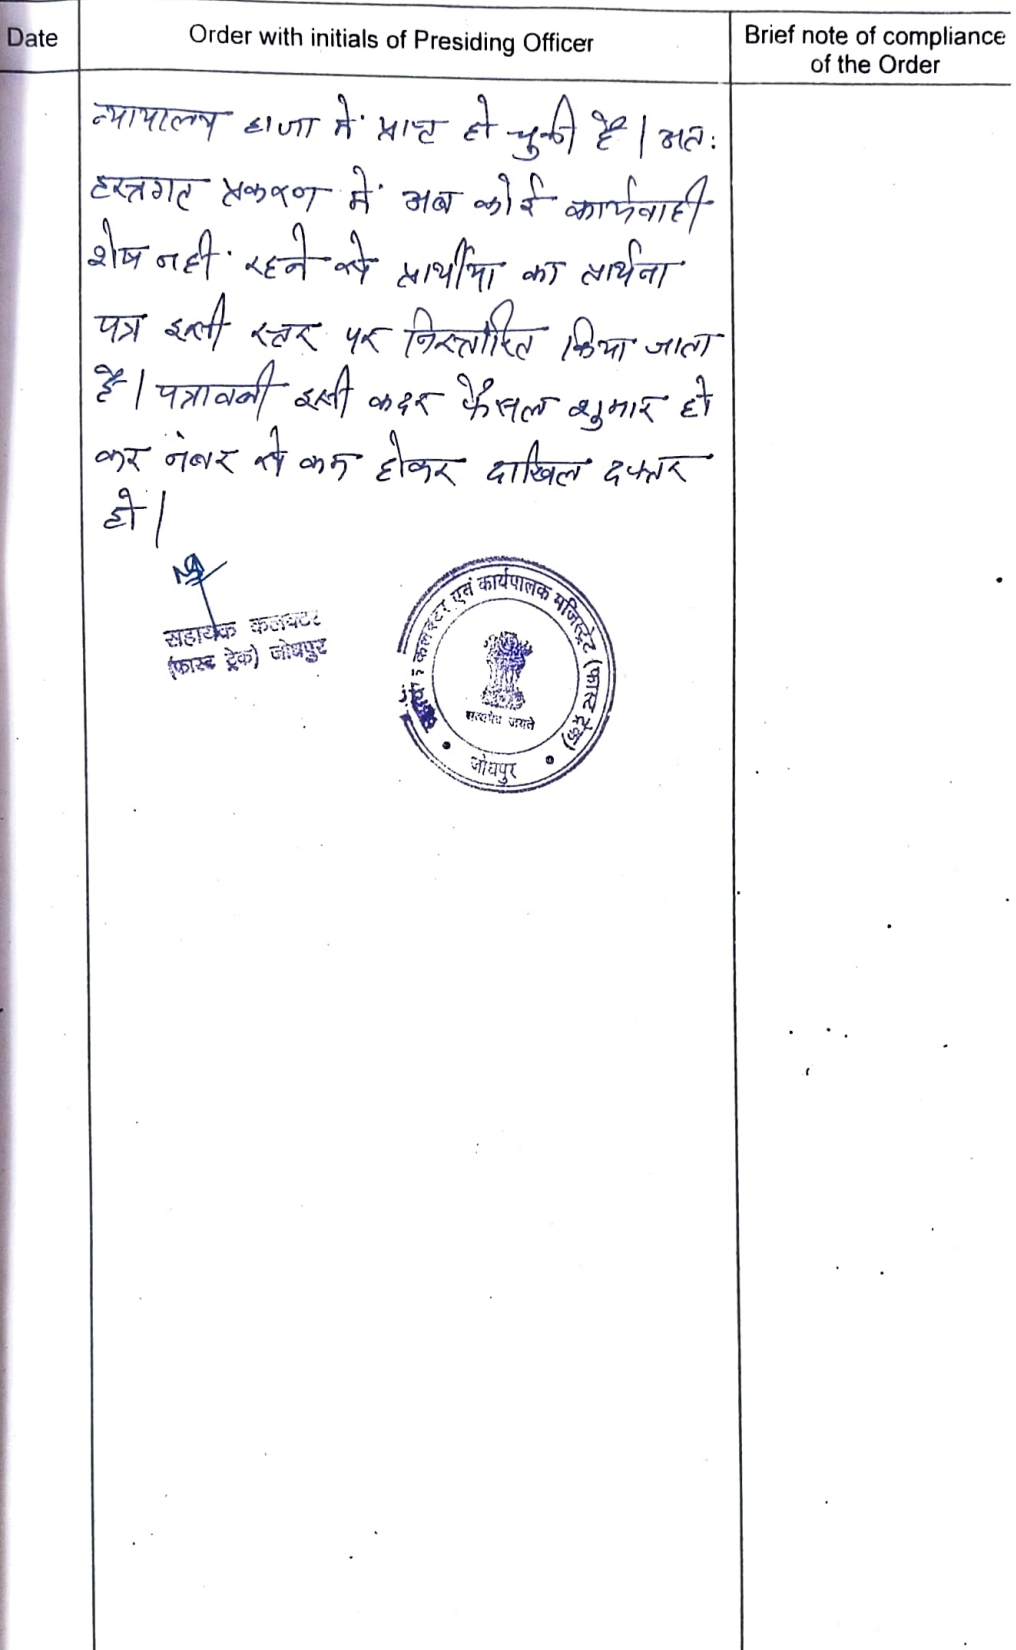 Date
Order with initials of Presiding Officer
Brief note of compliance
of the Order
न्यायालय हाजा में प्राप्त हो चुकी है। अतः
हस्तगत प्रकरण में अब कोई कार्यवाही
शेष नहीं रहने से प्रार्थीया का प्रार्थना
पत्र इसी स्तर पर निस्तारित किया जाता
है। पत्रावली इसी कदर फैसल शुमार हो
कर नंबर से कम होकर दाखिल दफ्तर
हो।
सहायक कलक्टर
(फास्ट ट्रेक) जोधपुर
कलक्टर एवं कार्यपालक मजिस्ट्रेट (फास्ट ट्रेक)
सत्यमेव जयते
जोधपुर